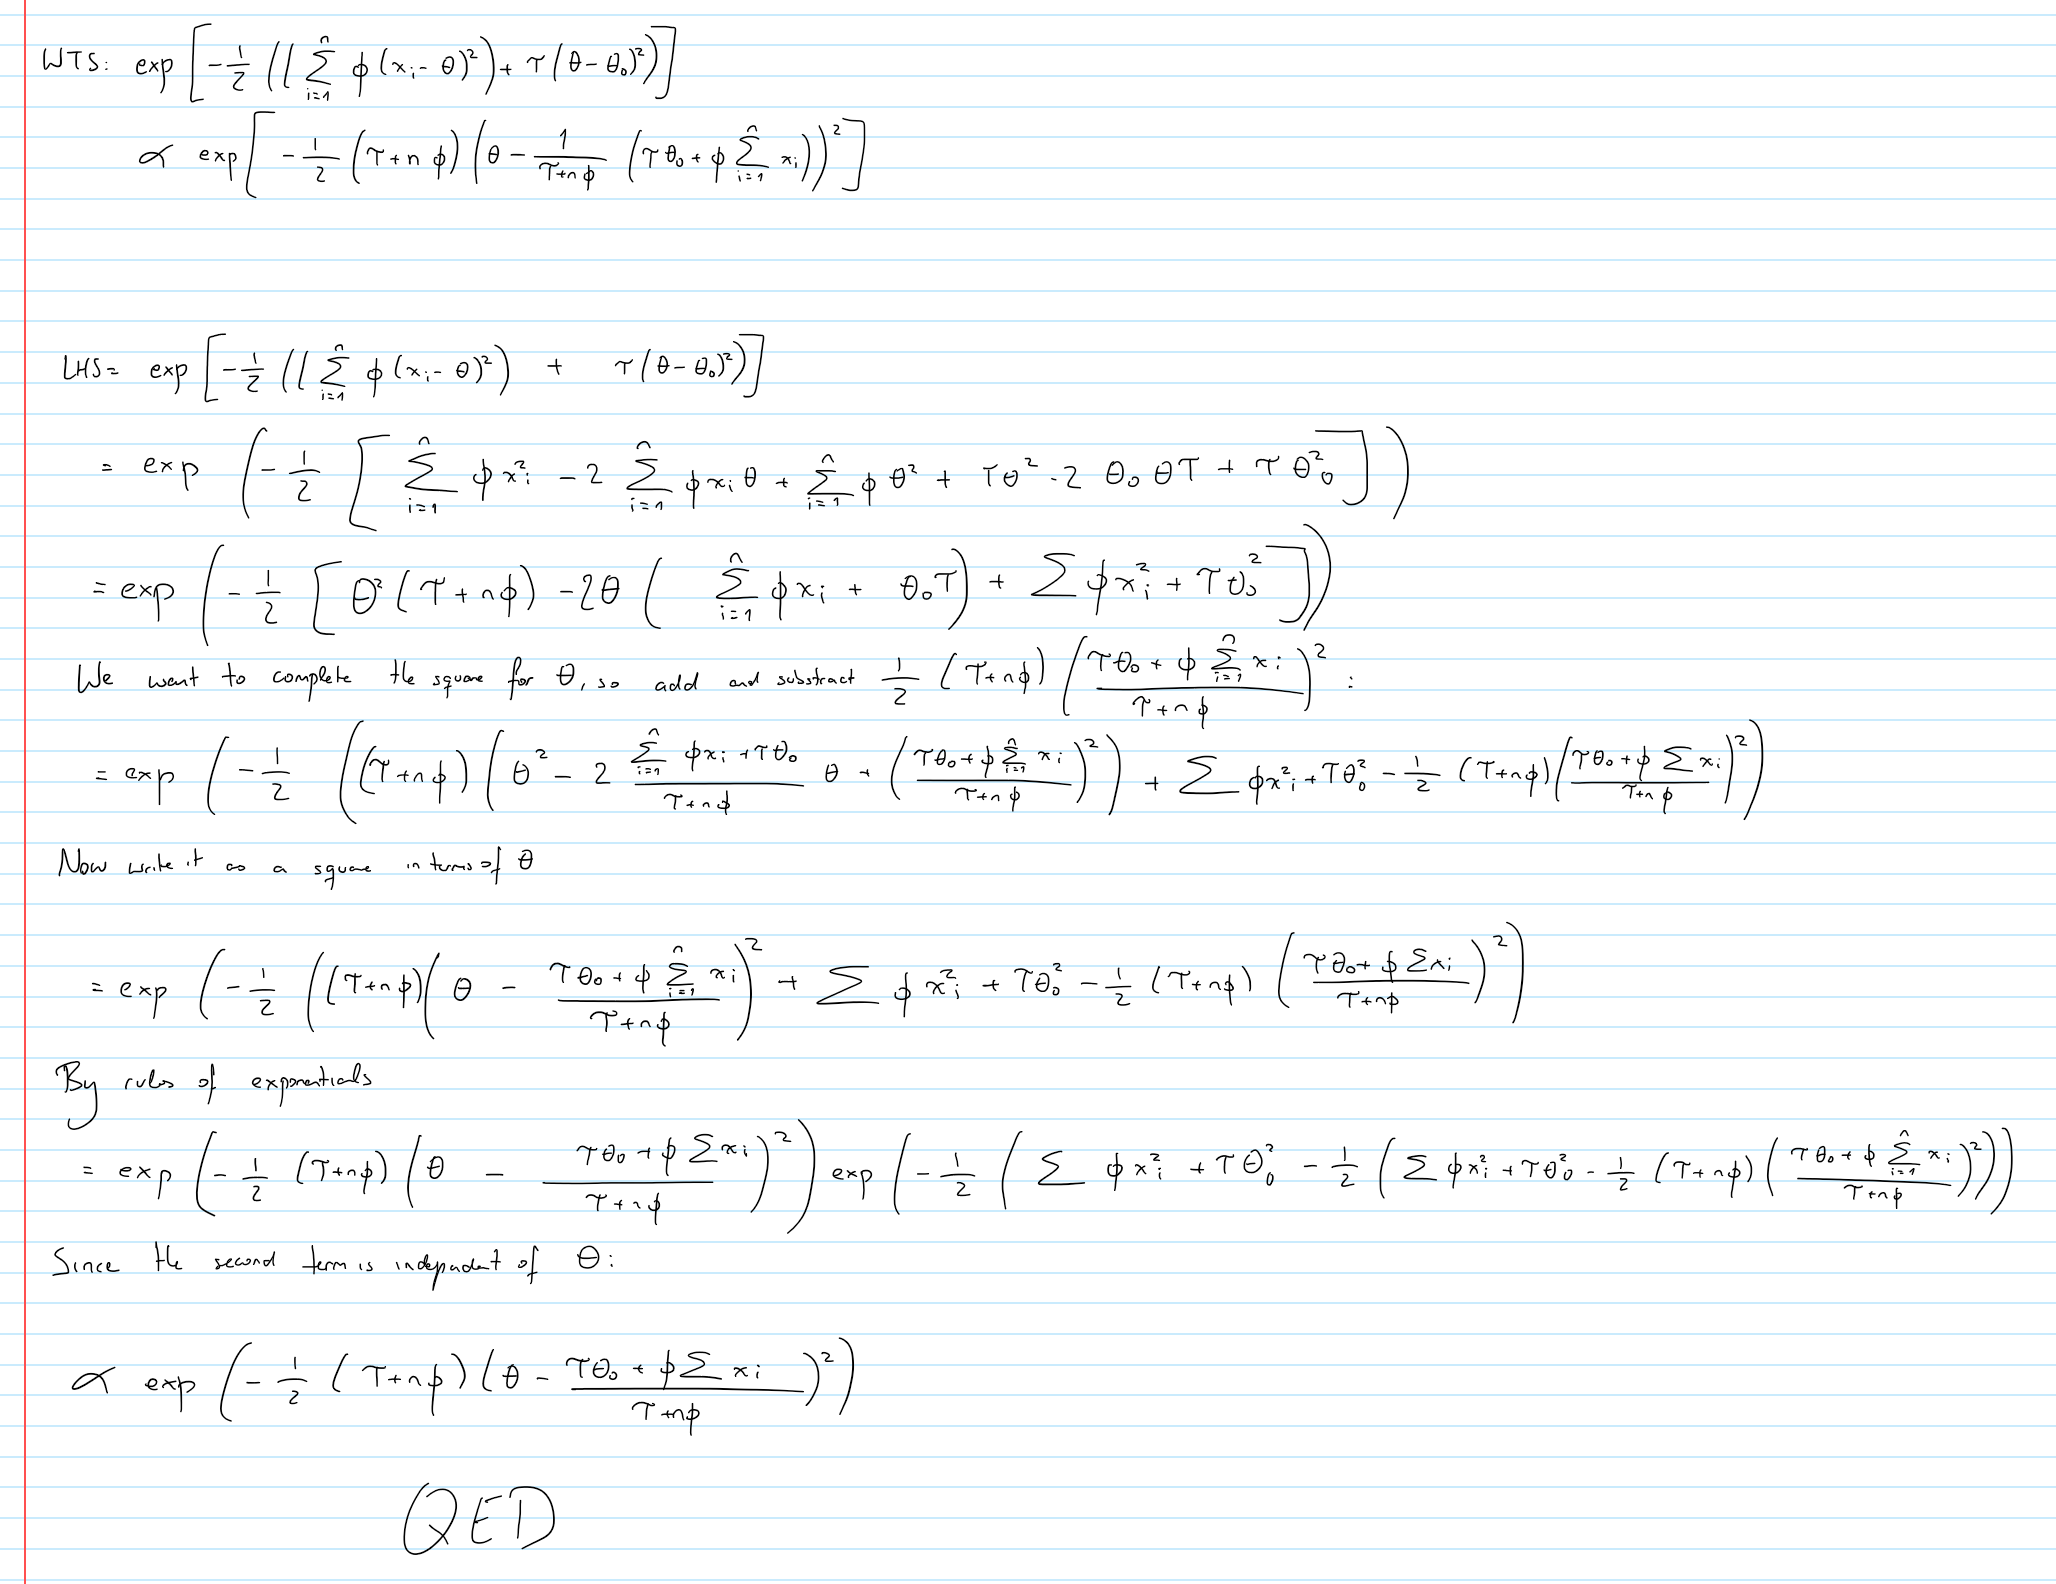 WTS: exp [ -1/2 ( ( ∑_{i=1}^n ϕ (x_i - θ)^2 ) + τ (θ - θ_0)^2 ) ]
∝ exp [ -1/2 (τ + n ϕ) ( θ - 1/(τ+nϕ) ( τ θ_0 + ϕ ∑_{i=1}^n x_i ) )^2 ]
LHS = exp [ -1/2 ( ( ∑_{i=1}^n ϕ (x_i - θ)^2 ) + τ (θ - θ_0)^2 ) ]
= exp ( -1/2 [ ∑_{i=1}^n ϕ x_i^2 - 2 ∑_{i=1}^n ϕ x_i θ + ∑_{i=1}^n ϕ θ^2 + τθ^2 - 2 θ_0 θ τ + τ θ_0^2 ] )
= exp ( -1/2 [ θ^2 (τ + nϕ) - 2θ ( ∑_{i=1}^n ϕ x_i + θ_0 τ ) + ∑ ϕ x_i^2 + τ θ_0^2 ] )
We want to complete the square for θ, so add and substract 1/2 (τ+nϕ) ( (τθ_0 + ϕ ∑_{i=1}^n x_i) / (τ+nϕ) )^2 :
= exp ( -1/2 ( (τ+nϕ) ( θ^2 - 2 (∑_{i=1}^n ϕx_i + τθ_0)/(τ+nϕ) θ + ( (τθ_0 + ϕ ∑_{i=1}^n x_i)/(τ+nϕ) )^2 ) + ∑ ϕx_i^2 + τθ_0^2 - 1/2 (τ+nϕ) ( (τθ_0 + ϕ ∑ x_i)/(τ+nϕ) )^2 )
Now write it as a square in terms of θ
= exp ( -1/2 ( (τ+nϕ) ( θ - (τθ_0 + ϕ ∑_{i=1}^n x_i)/(τ+nϕ) )^2 + ∑ ϕ x_i^2 + τθ_0^2 - 1/2 (τ+nϕ) ( (τθ_0 + ϕ ∑x_i)/(τ+nϕ) )^2 )
By rules of exponentials
= exp ( -1/2 (τ+nϕ) ( θ - (τθ_0 + ϕ ∑x_i)/(τ+nϕ) )^2 ) exp ( -1/2 ( ∑ ϕ x_i^2 + τθ_0^2 - 1/2 ( ∑ ϕx_i^2 + τθ_0^2 - 1/2 (τ+nϕ) ( (τθ_0 + ϕ ∑_{i=1}^n x_i)/(τ+nϕ) )^2 ) ) )
Since the second term is indepadent of θ:
∝ exp ( -1/2 ( τ+nϕ ) ( θ - (τθ_0 + ϕ ∑ x_i)/(τ+nϕ) )^2 )
QED